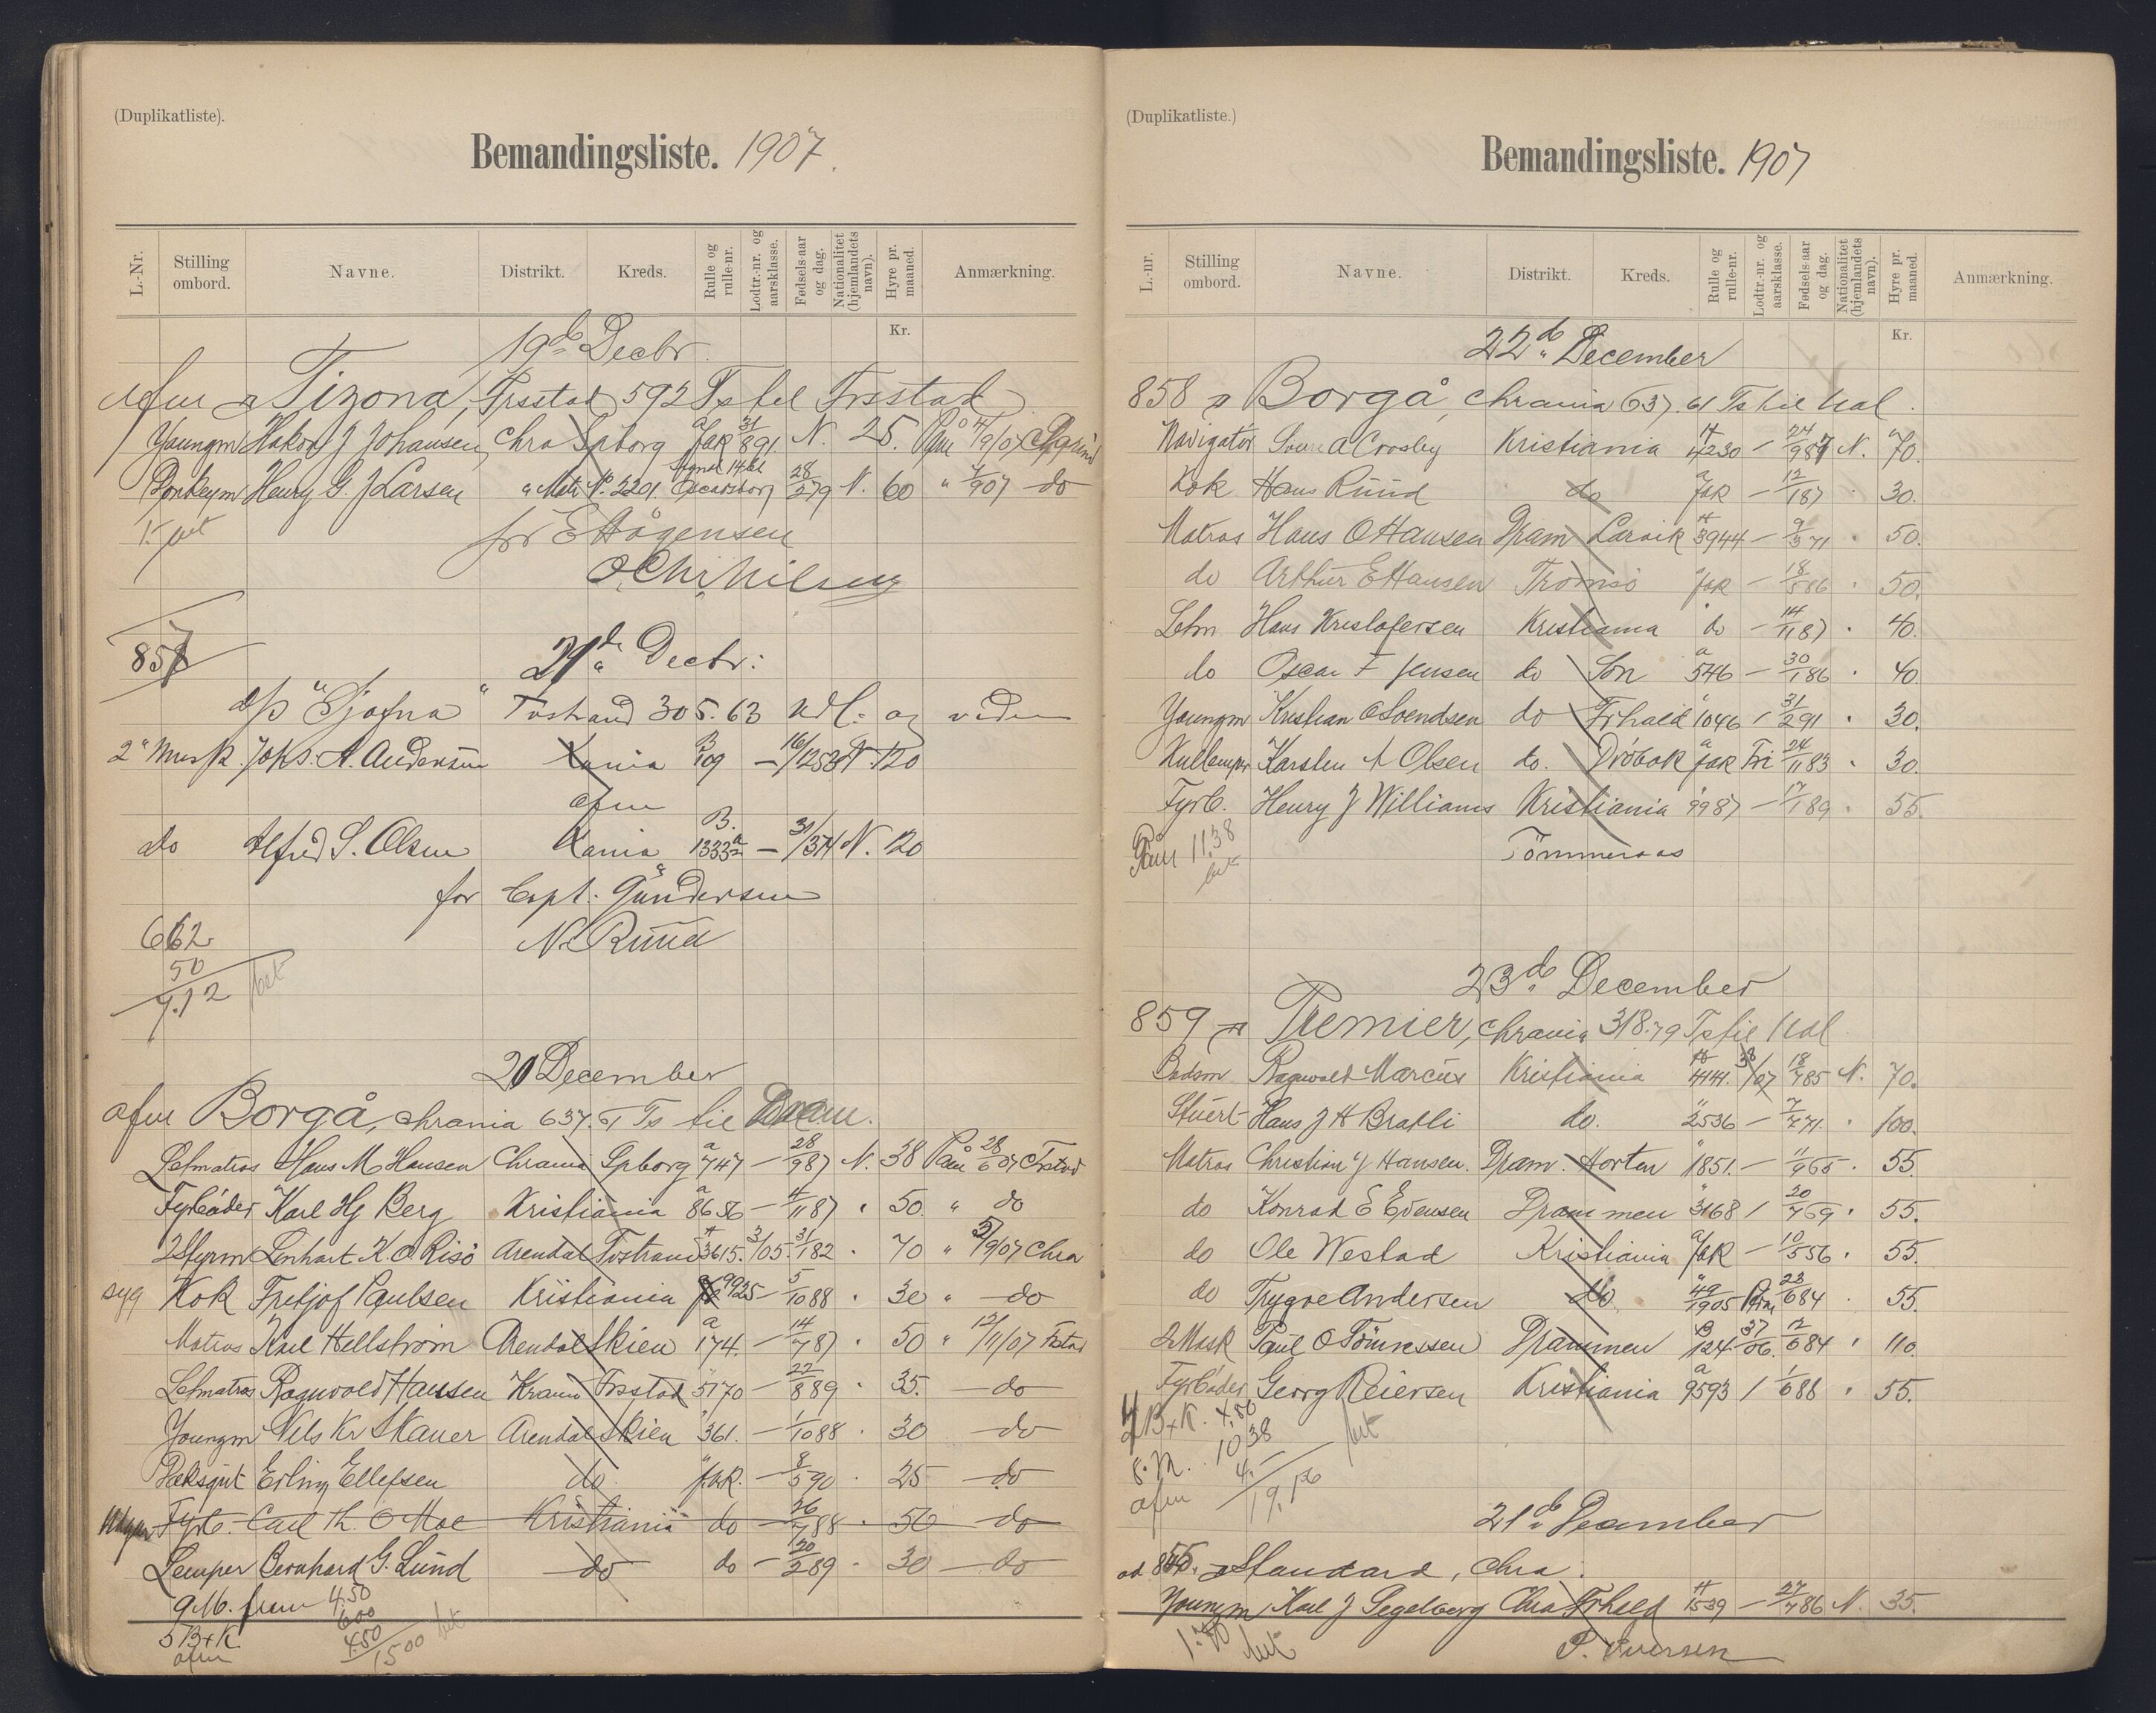 (Duplikatliste).
Bemandingsliste. 1907.
L.-Nr. Stilling ombord. Navne. Distrikt. Kreds. Rulle og rulle-nr. Lodtr.-nr. og aarsklasse. Fødsels-aar og dag. Nationalitet (hjemlandets navn). Hyre pr. maaned. Anmærkning.
Kr.
19de Decbr
afm Tizona, Frsstad 592 Ts til Frsstad
Youngm Hakon J Johansen Chra Spborg fak 31/8 91 N. 25.
Henry G. J Larsen 2291 Oscarsborg 28/2 79 N. 60 " do
for E Hågensen
O. Chr. Nilsen
857
21de Decbr:
d/s "Sjofna" Tvstrand 305.63 udl. og viden
2" Mask. Johs. A. Andersen Kania B 109 — N 120
afm
do Alfred S. Olsen Kania B. 1333 — N. 120
for Capt. Gundersen
N. Ruud
662
50
7.12 bet
20 December
afm Borgå, chrania 637.61 Ts til Dram.
Letmatros Hans M Hansen Chrania Spborg a 747 — 28/9 87 N. 38
Fyrbøder Karl Hj Berg Kristiania a 8656 — 4/11 87 " 50 " do
2 Styrm Lenhart K. O. Risö Arendal Tvstrand 3615. 3/05. 31/1 82 " 70 " 5/9/07 Chra
syg Kok Fritjof Paulsen Kristiania 9925 — 5/10 88 " 30 " do
Matros Karl Hellstrøm Arendal Skien a 174. — 14/7 87 " 50 " 12/11/07 Fsstad
Letmatros Ragnvold Hansen Krania Frsstad " 5170 — 22/8 89 " 35. — do
Youngm Nils Kr Skauer Arendal Skien " 361. — 1/10 88 " 30 do
Dæksgut Erling Ellefsen do. " fak. — 8/5 90 " 25 do
Fyrb. Carl Th. O Moe Kristiania do — 26/7 88 " 50 do
Lemper Bernhard G. Lund do do — 20/2 89 " 30 — do
9 M. frem 4.50
600
5 B+K. 4.50
afm 15 00 bet
(Duplikatliste.)
Bemandingsliste. 1907
L.-nr. Stilling ombord. Navne. Distrikt. Kreds. Rulle og rulle-nr. Lodtr.-nr. og aarsklasse. Fødsels-aar og dag. Nationalitet (hjemlandets navn). Hyre pr. maaned. Anmærkning.
Kr.
22de December
858 Borgå, chrania 637.61 Ts til Udl.
Navigatör A Crosby Kristiania 4230 — 24/9 87 N. 70.
Kok Hans Ruud do a fak — 12/1 87 " 30.
Matros Hans O Hansen Dram Larvik 3944 — 9/3 71 " 50.
do Arthur E Hansen Tromsö fak — 18/5 86 " 50.
Letm Hans Kristofersen Kristiania do — 14/11 87 " 40.
do Oscar F Jensen do Son a 546 — 30/1 86 " 40
Youngm Kristian O Svendsen do Frhald " 1046 1 31/2 91 " 30.
Kullemper Karsten A Olsen do. Dröbak a fak Fri 24/11 83 " 30.
Fyrb. Henry J Williams Kristiania 9987 — 17/1 89 " 55.
Påm 11.38 Tömmeraas
bet
23de December
859 Premier, chrania 318.79 Ts til Udl
Badsm Ragnvald Marcus Kristiania 4141. 18/7 85 N. 70.
Stuert Hans J H Bratli do. " 2536 — 7/7 71. " 100.
Matros Christian J Hansen. Dram. Horten " 1851. — 11/9 65 " 55.
do Konrad E Evensen Drammen " 3168 1 20/7 69 " 55.
do Ole Westad Kristiania a fak — 10/5 56 " 55.
do Trygve Andersen do 49/1905 23/6 84 " 55.
2 Mask Paul O Tönnessen Drammen B 124 37/06. 12/6 84 " 110.
Fyrbøder Georg Reiersen Kristiania a 9593 1 1/6 88 " 55.
B+K. 4.50
8. M. 10.38
4.
afm 19.16 bet
21de December
ad 855. Standard, Chra.
Youngm Karl J Segelberg Chra Frhald 1539 — 27/7 86 N. 35.
bet P. Iversen